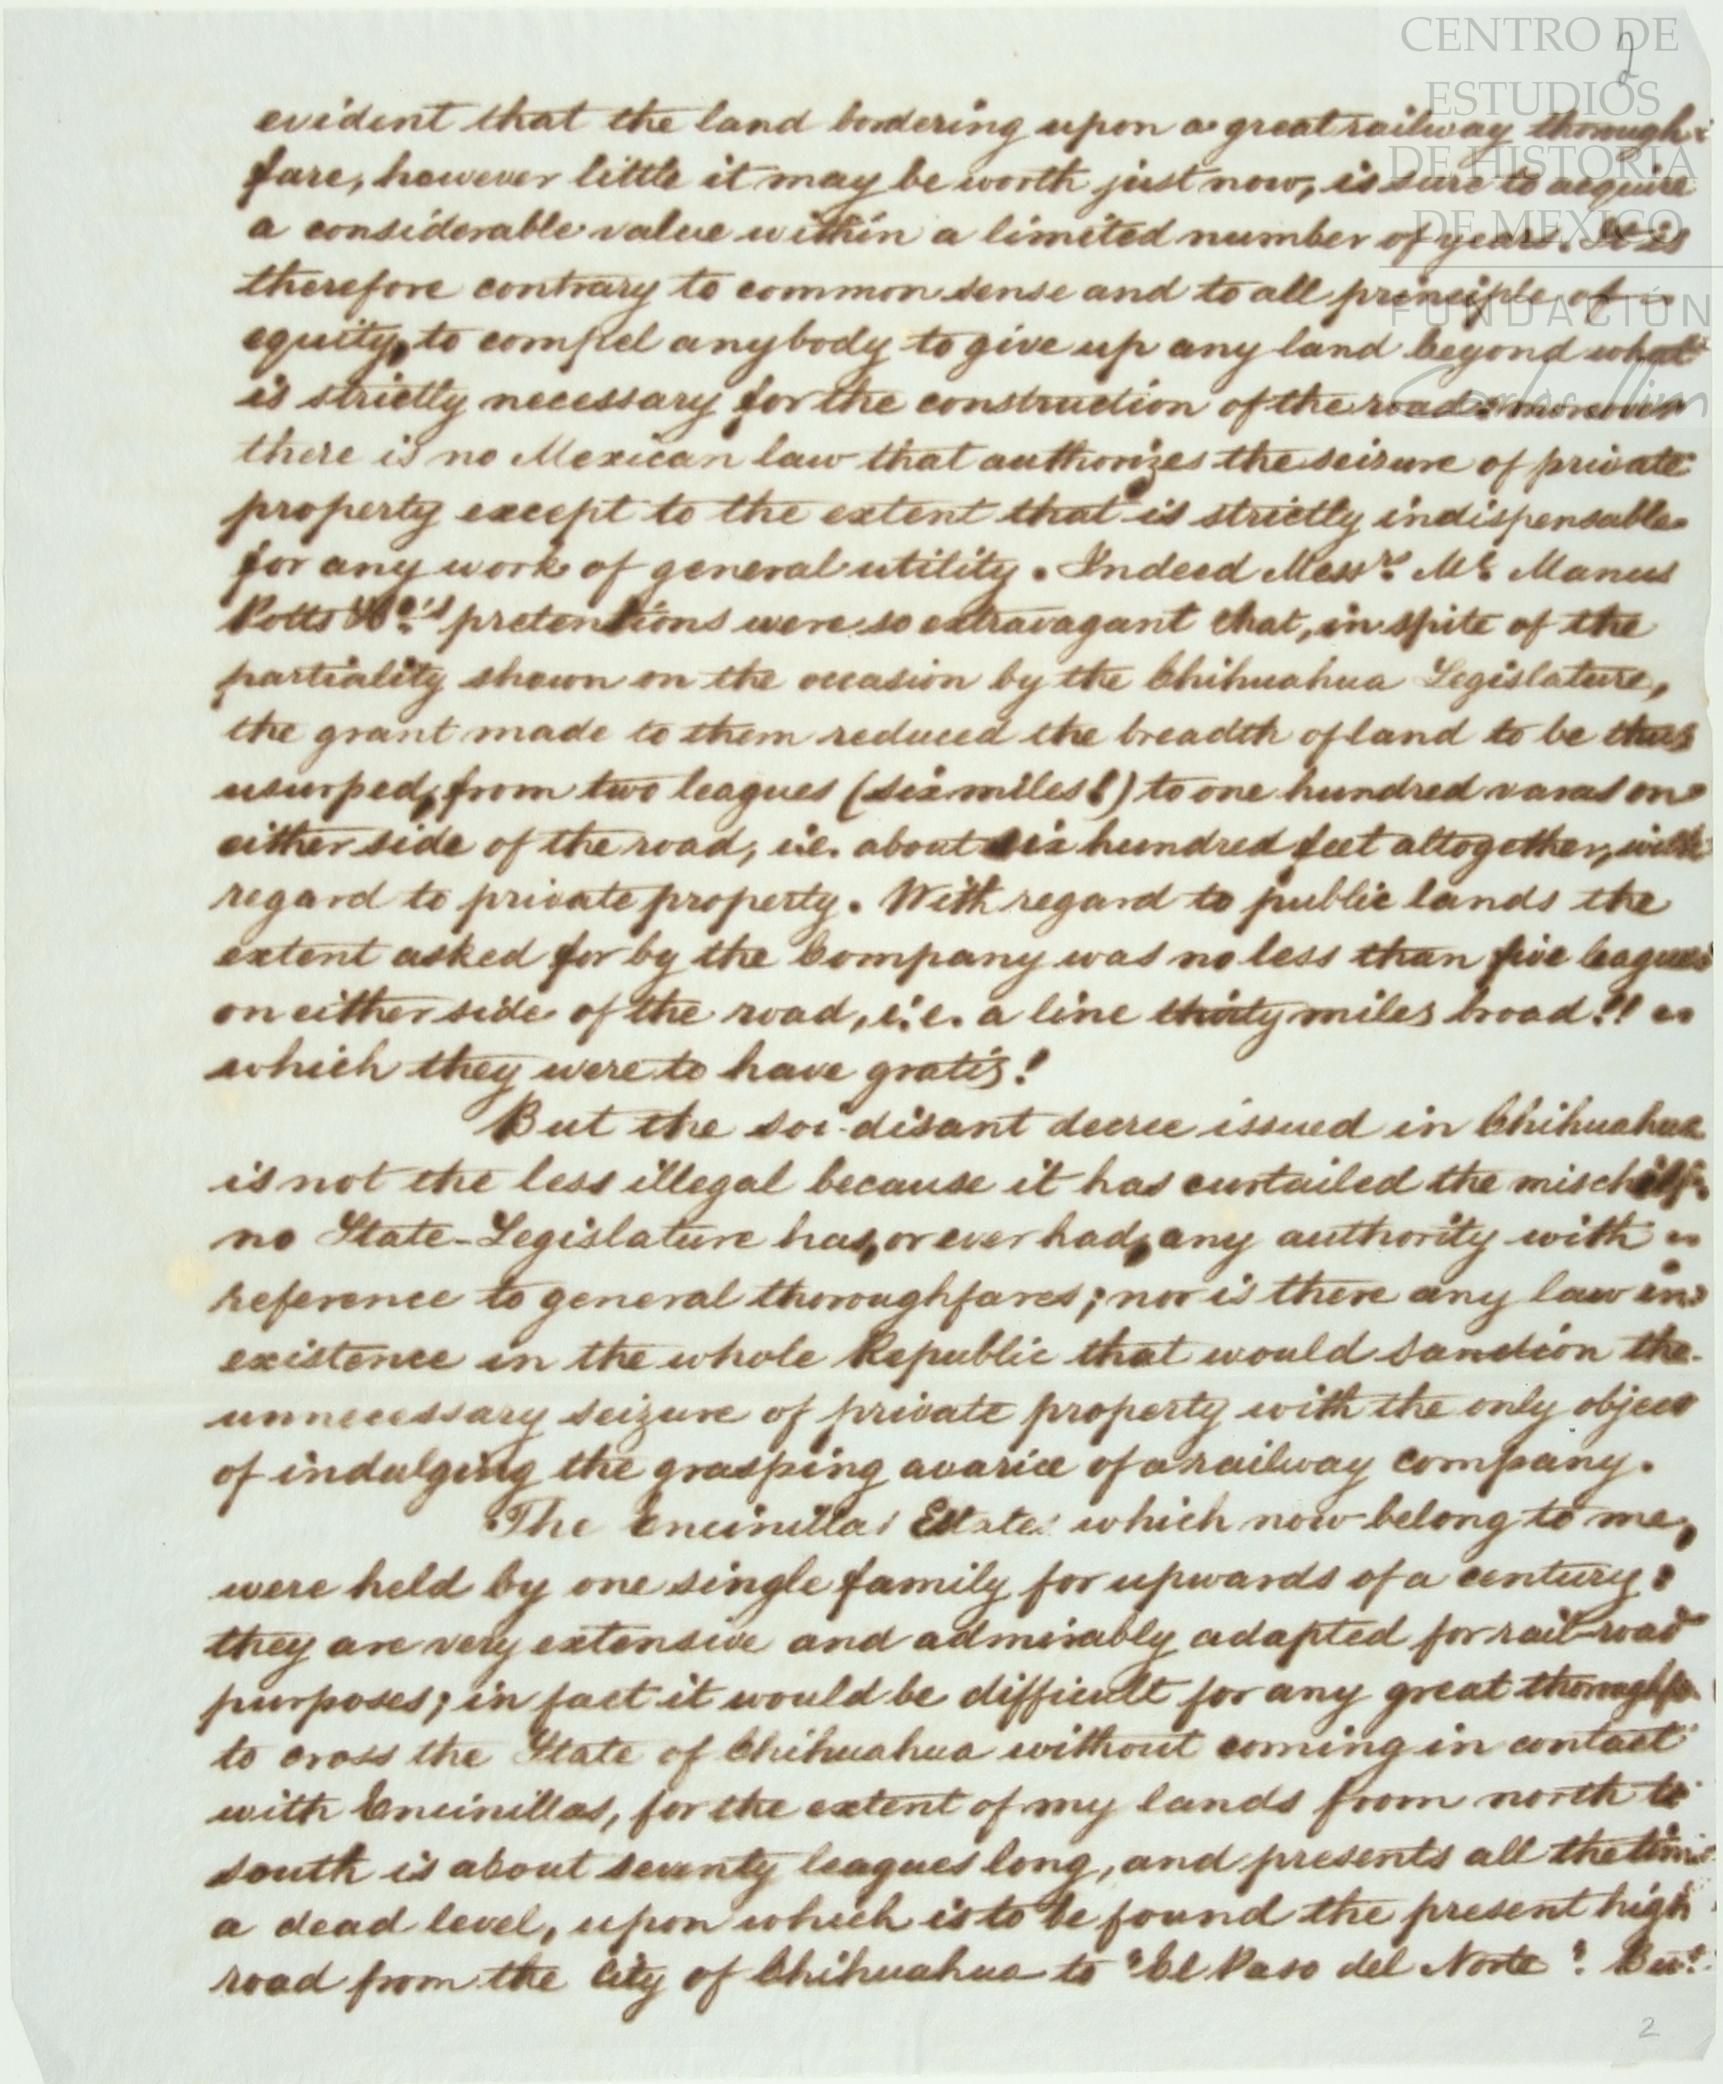 CENTRO DE
ESTUDIOS
DE HISTORIA
DE MEXICO
FUNDACIÓN
2
evident that the land bordering upon a great railway thorough
fare, however little it may be worth just now, is sure to acquire
a considerable value within a limited number of years. It is
therefore contrary to common sense and to all principle of
equity, to compel anybody to give up any land beyond what
is strictly necessary for the construction of the road: moreover
there is no Mexican law that authorizes the seizure of private
property except to the extent that is strictly indispensable
for any work of general utility. Indeed Messrs. Mc. Manus
Potts & Co.'s pretentions were so extravagant that, in spite of the
partiality shown on the occasion by the Chihuahua Legislature,
the grant made to them reduced the breadth of land to be thus
usurped, from two leagues (six miles!) to one hundred varas on
either side of the road, i.e. about six hundred feet altogether, with
regard to private property. With regard to public lands the
extent asked for by the Company was no less than five leagues
on either side of the road, i.e. a line thirty miles broad!!
which they were to have gratis!
But the soi-disant decree issued in Chihuahua
is not the less illegal because it has curtailed the mischief:
no State-Legislature has, or ever had, any authority with
reference to general thoroughfares; nor is there any law in
existence in the whole Republic that would sanction the
unnecessary seizure of private property with the only object
of indulging the grasping avarice of a railway company.
The Encinillas Estates which now belong to me,
were held by one single family for upwards of a century:
they are very extensive and admirably adapted for rail-road
purposes; in fact it would be difficult for any great thoroughfa
to cross the State of Chihuahua without coming in contact
with Encinillas, for the extent of my lands from north to
south is about seventy leagues long, and presents all the time
a dead level, upon which is to be found the present high
road from the City of Chihuahua to "El Paso del Norte". But
2